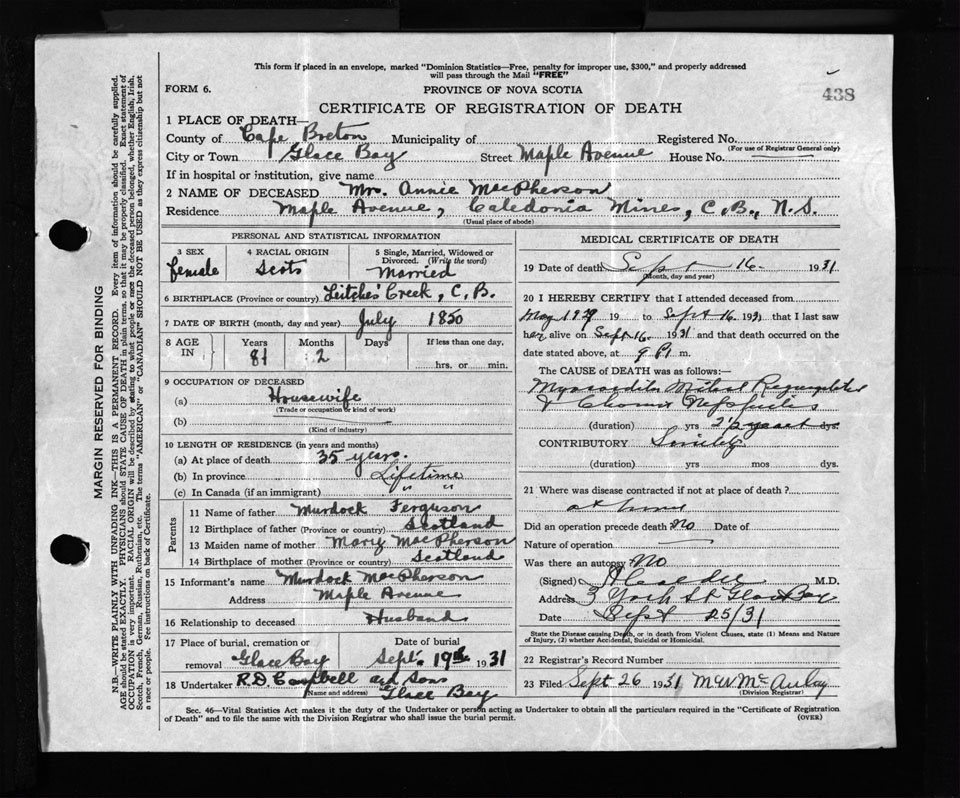 This form if placed in an envelope, marked "Dominion Statistics—Free, penalty for improper use, $300," and properly addressed
will pass through the Mail "FREE"
FORM 6.
PROVINCE OF NOVA SCOTIA
438
CERTIFICATE OF REGISTRATION OF DEATH
1 PLACE OF DEATH—
County of Cape Breton Municipality of Registered No.
(For use of Registrar General only)
City or Town Glace Bay Street Maple Avenue House No.
If in hospital or institution, give name
2 NAME OF DECEASED Mrs. Annie MacPherson
Residence Maple Avenue, Caledonia Mines, C.B., N.S.
(Usual place of abode)
PERSONAL AND STATISTICAL INFORMATION
3 SEX
female
4 RACIAL ORIGIN
Scots
5 Single, Married, Widowed or
Divorced. (Write the word)
Married
6 BIRTHPLACE (Province or country) Leitches Creek, C.B.
7 DATE OF BIRTH (month, day and year) July 1850
8 AGE IN
Years
81
Months
2
Days
If less than one day,
hrs. or min.
9 OCCUPATION OF DECEASED
(a) Housewife
(Trade or occupation or kind of work)
(b)
(Kind of industry)
10 LENGTH OF RESIDENCE (in years and months)
(a) At place of death 35 years.
(b) In province Lifetime
(c) In Canada (if an immigrant) " "
Parents
11 Name of father Murdock Ferguson
12 Birthplace of father (Province or country) Scotland
13 Maiden name of mother Mary MacPherson
14 Birthplace of mother (Province or country) Scotland
15 Informant's name Murdock MacPherson
Address Maple Avenue
16 Relationship to deceased Husband
17 Place of burial, cremation or
removal Glace Bay
Date of burial
Sept. 19th 1931
18 Undertaker R.D. Campbell and Sons
(Name and address) Glace Bay
MEDICAL CERTIFICATE OF DEATH
19 Date of death Sept 16 1931
(Month, day and year)
20 I HEREBY CERTIFY that I attended deceased from
May 1929 19 to Sept 16 1931 that I last saw
her alive on Sept 16 1931 and that death occurred on the
date stated above, at 9 P. m.
The CAUSE of DEATH was as follows:
Myocarditis Mitral Regurgitation
& Chronic Nephritis
(duration) yrs 2 years dys
CONTRIBUTORY Senility
(duration) yrs mos dys.
21 Where was disease contracted if not at place of death ?
at home
Did an operation precede death No Date of
Nature of operation
Was there an autopsy No
(Signed) M.D.
Address 3 York St Glace Bay
Date Sept 25/31
State the Disease causing Death, or in death from Violent Causes, state (1) Means and Nature
of Injury, (2) whether Accidental, Suicidal or Homicidal.
22 Registrar's Record Number
23 Filed Sept 26 1931
(Division Registrar)
Sec. 46—Vital Statistics Act makes it the duty of the Undertaker or person acting as Undertaker to obtain all the particulars required in the "Certificate of Registration
of Death" and to file the same with the Division Registrar who shall issue the burial permit.
(OVER)
MARGIN RESERVED FOR BINDING
N.B.—WRITE PLAINLY WITH UNFADING INK—THIS IS A PERMANENT RECORD. Every item of information should be carefully supplied.
AGE should be stated EXACTLY. PHYSICIANS should STATE CAUSE OF DEATH in plain terms, so that it may be properly classified. Exact statement of
OCCUPATION is very important. RACIAL ORIGIN will be described by stating to what people or race the deceased person belonged, whether English, Irish,
Scotch, French, German, Russian, Ruthenian, etc. The terms "AMERICAN" or "CANADIAN" SHOULD NOT BE USED as they express citizenship but not
a race or people. See instructions on back of Certificate.